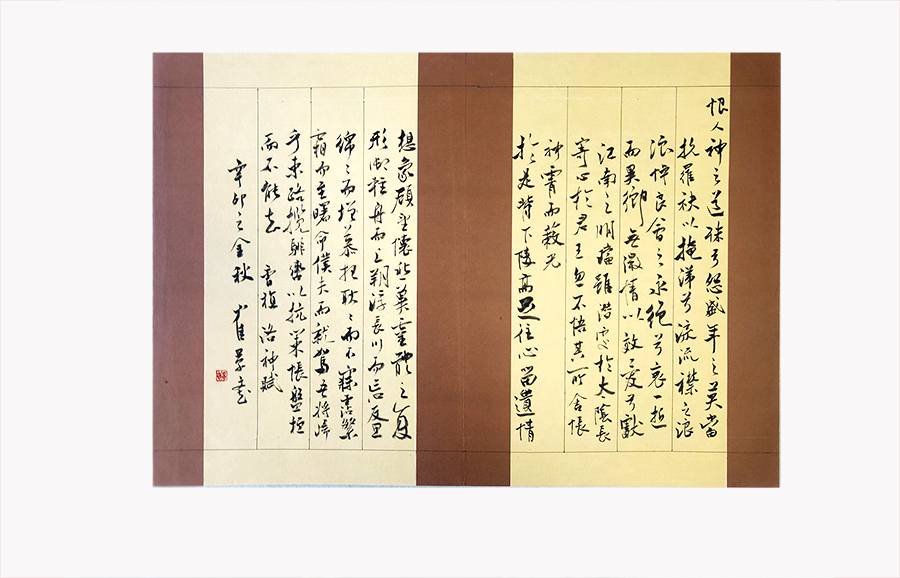 恨人神之道殊兮怨盛年之莫當
抗羅袂以掩涕兮淚流襟之浪
浪悼良會之永絕兮哀一逝
而異鄉無微情以效愛兮獻
江南之明璫雖潛處於太陰長
寄心於君王忽不悟其所舍悵
神霄而蔽光
於是背下陵高足往心留遺情
想象顧望懷愁冀靈體之復
形御輕舟而上朔浮長川而忘反思
綿々而增慕夜耿々而不寐霑繁
霜而至曙命僕夫而就駕吾將歸
乎東路攬騑轡以抗策悵盤桓
而不能去 曹植 洛神賦
辛卯之金秋 崔景書